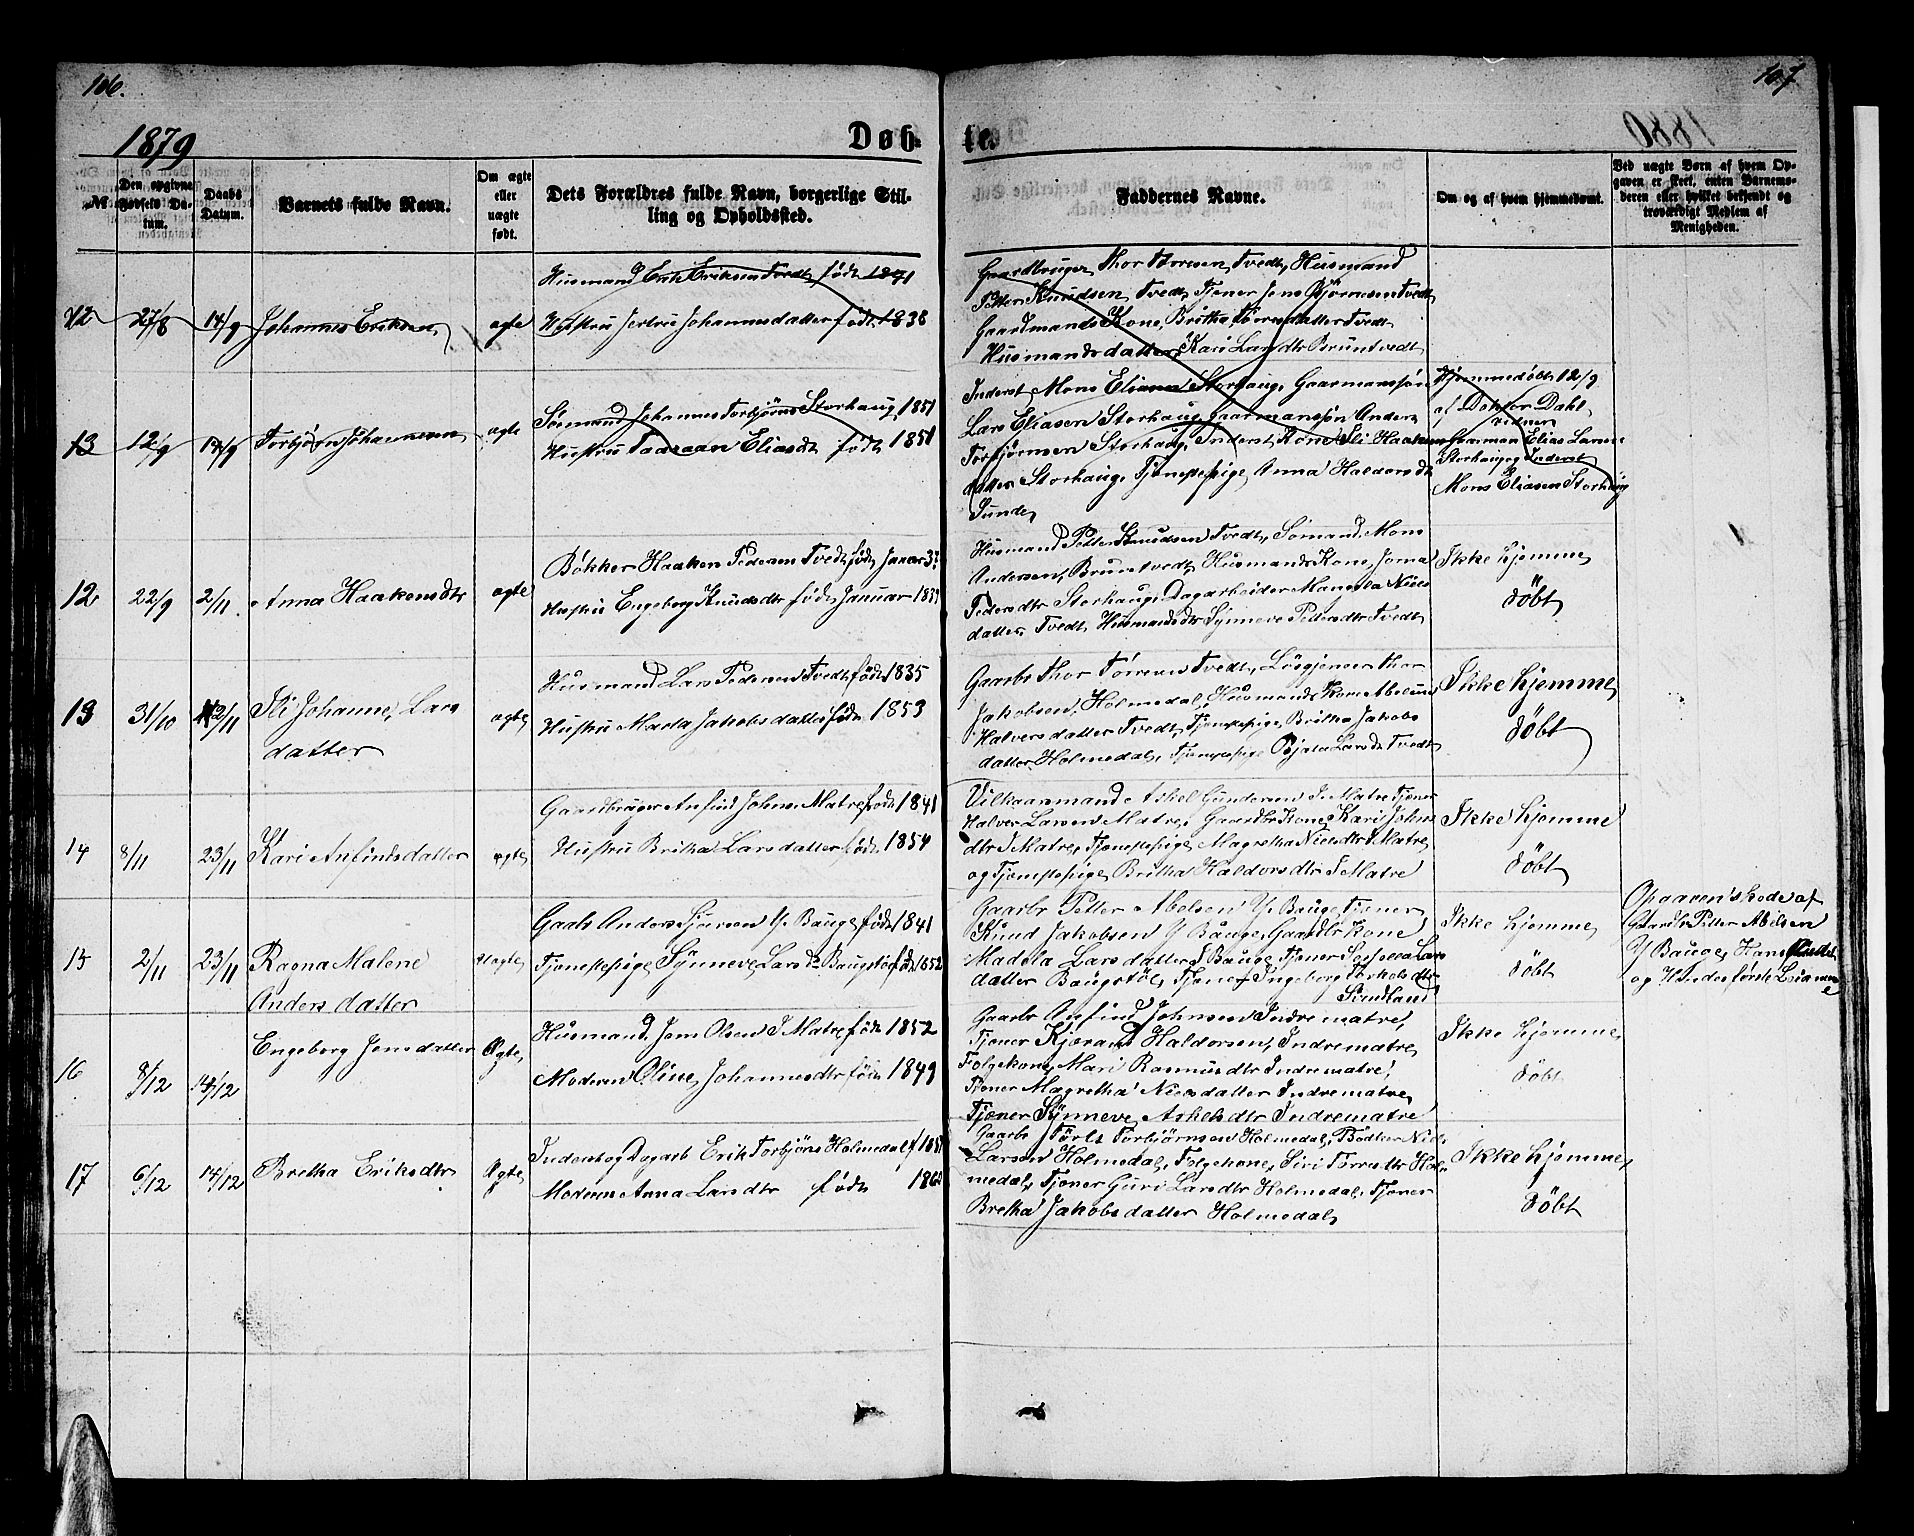 106.
107
1879
Døb-
te.
№
Den opgivne Fødsels Datum.
Daabs Datum.
Barnets fulde Navn.
Om ægte eller uægte født.
Dets Forældres fulde Navn, borgerlige Stilling og Opholdssted.
Faddernes Navne.
Om og af hvem hjemmedøbt.
Ved uægte Børn af hvem Opgaven er skeet, enten Barnemoderen eller hvilket bekjendt og troværdigt Medlem af Menigheden.
12
27/8
14/9
Johannes Eriksen
ægte
Husmand Erik Eriksen Tvedt, født 1841
Hustru Jertru Johannesdatter født 1838
Gaardbruger Thor Toresen Tvedt, Husmand
Petter Knudsen Tvedt, Tjener Jens Bjørnesen Tvedt
Gaardmands Kone, Britha Toresdatter Tvedt
Husmandsdatter Kari Larsdtr Bruntvedt
13
12/9
14/9
Torbjørn Johannesen
ægte
Sømand Johannes Torbjørns Storhaug 1851
Hustru Eliasdt født 1851
Inderst Mons Eliasen Storhaug, Gaarmanssøn
Lars Eliasen Storhaug, Gaarmanssøn Anders
Torbjørnsen Storhaug, Inderst, Kone Sli Haakens
datter Storhaug, Tjenestepige Anna Haldorsdt
Sunde
Hjemmedøbt 12/9
af Doktor Dahl
vidner
Gaarman Elias Larsen
Storhaug og Inderst
Mons Eliasen Storhaug
12
22/9
2/11.
Anna Haakensdtr
ægte
Bøkker Haaken Pedersen Tvedt, født Januar
Hustru Engeborg Knudsdtr født Januar
Husmand Petter Knudsen Tvedt, Sømand Mons
Andersen, Bruntvedt, Husmands Kone, Joma
Pedersdtr Storhaug, Dagarbeider Mangela Niels
datter Tvedt, Husmandsdtr Synneve Pettersdtr Tvedt
Ikke hjemme
døbt
13
31/10
2/11
Sli Johanne, Lars
datter
ægte
Husmand Lars Pedersen Tvedt født 1835
Hustru Marta Jakobsdatter født 1853
Gaarbr Thor Torresen Tvedt, Løsgjenger Thor
Jakobsen, Holmedal, Husmands Kone Abelune
Halversdatter Tvedt, Tjenestepige, Britha Jakobs
datter Holmedal, Tjenestepige Larsdt Tvedt
Ikke hjemme
døbt
14
8/11
23/11
Kari Anfindsdatter
ægte
Gaardbruger Anfind Johns. Matre født 1841
Hustru Britha Larsdatter født 1854
Vilkaarsmand Askel Gundersen I. Matre Tjener
Halver Larsen Matre, Gaardbr Kone, Kari Johns
dtr I Matre, Tjenestepige Magretha Nielsdtr I Matre
og Tjenestepige, Britha Haldorsdtr I Matre
Ikke hjemme
døbt
15
2/11
23/11
Ragna Malene
Anders datter
Uægte
Gaab Anders Sjursen Y. Bauge født 1841
Tjenestepige, Synneve Larsdt Baugstøl født 1852
Gaarbr Petter Abelsen Y. Bauge, Tjener
Knud Jakobsen Y Bauge, Gaardbr Kone
Madela Larsdatter I Bauge, Tjener Lars
datter Baugstøl, Tjener Ingeborg Torkelsdtr
Sundland
Ikke hjemme
døbt
Opgaven skede af
Gaardb Petter Abelsen
Y Bauge,
16
8/12
14/12
Engeborg Jensdatter
Ægte
Husmand, Jens Olsen I Matre født 1852
Moderen Oline, Johannesdtr født 1849
Gaarbr Anfind Johnsen Indrematre,
Tjener Kjørand Haldorsen, Indrematre
Folgekone, Mari Rasmusdtr Indrematre,
Tjener Magretha Nielsdatter Indrematre,
Tjener Synneve Askelsdtr Indrematre
Ikke hjemme
døbt
17
6/12
14/12
Bretha Eriksdtr
Ægte
Inderst og Dagarb Erik Torbjøns Holmedal f
Moderen Anna Larsdtr født
Gaarbr Torls Torbjørnsen Holmedal, Bødker Niels
Larsen Holmedal, Folgekone, Siri Torresdtr Hol-
medal, Tjener Guri Larsdtr Holmedal, Tjener
Bretha Jakobsdatter Holmedal,
Ikke hjemme,
døbt